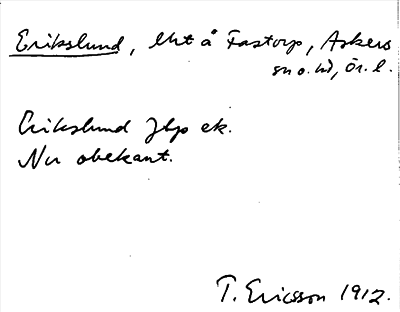 Erikslund, lht å Fastorp, Askers
sn o. hd, Ör. l.
Erikslund Jbp ek.
Nu obekant.
T. Ericsson 1912.